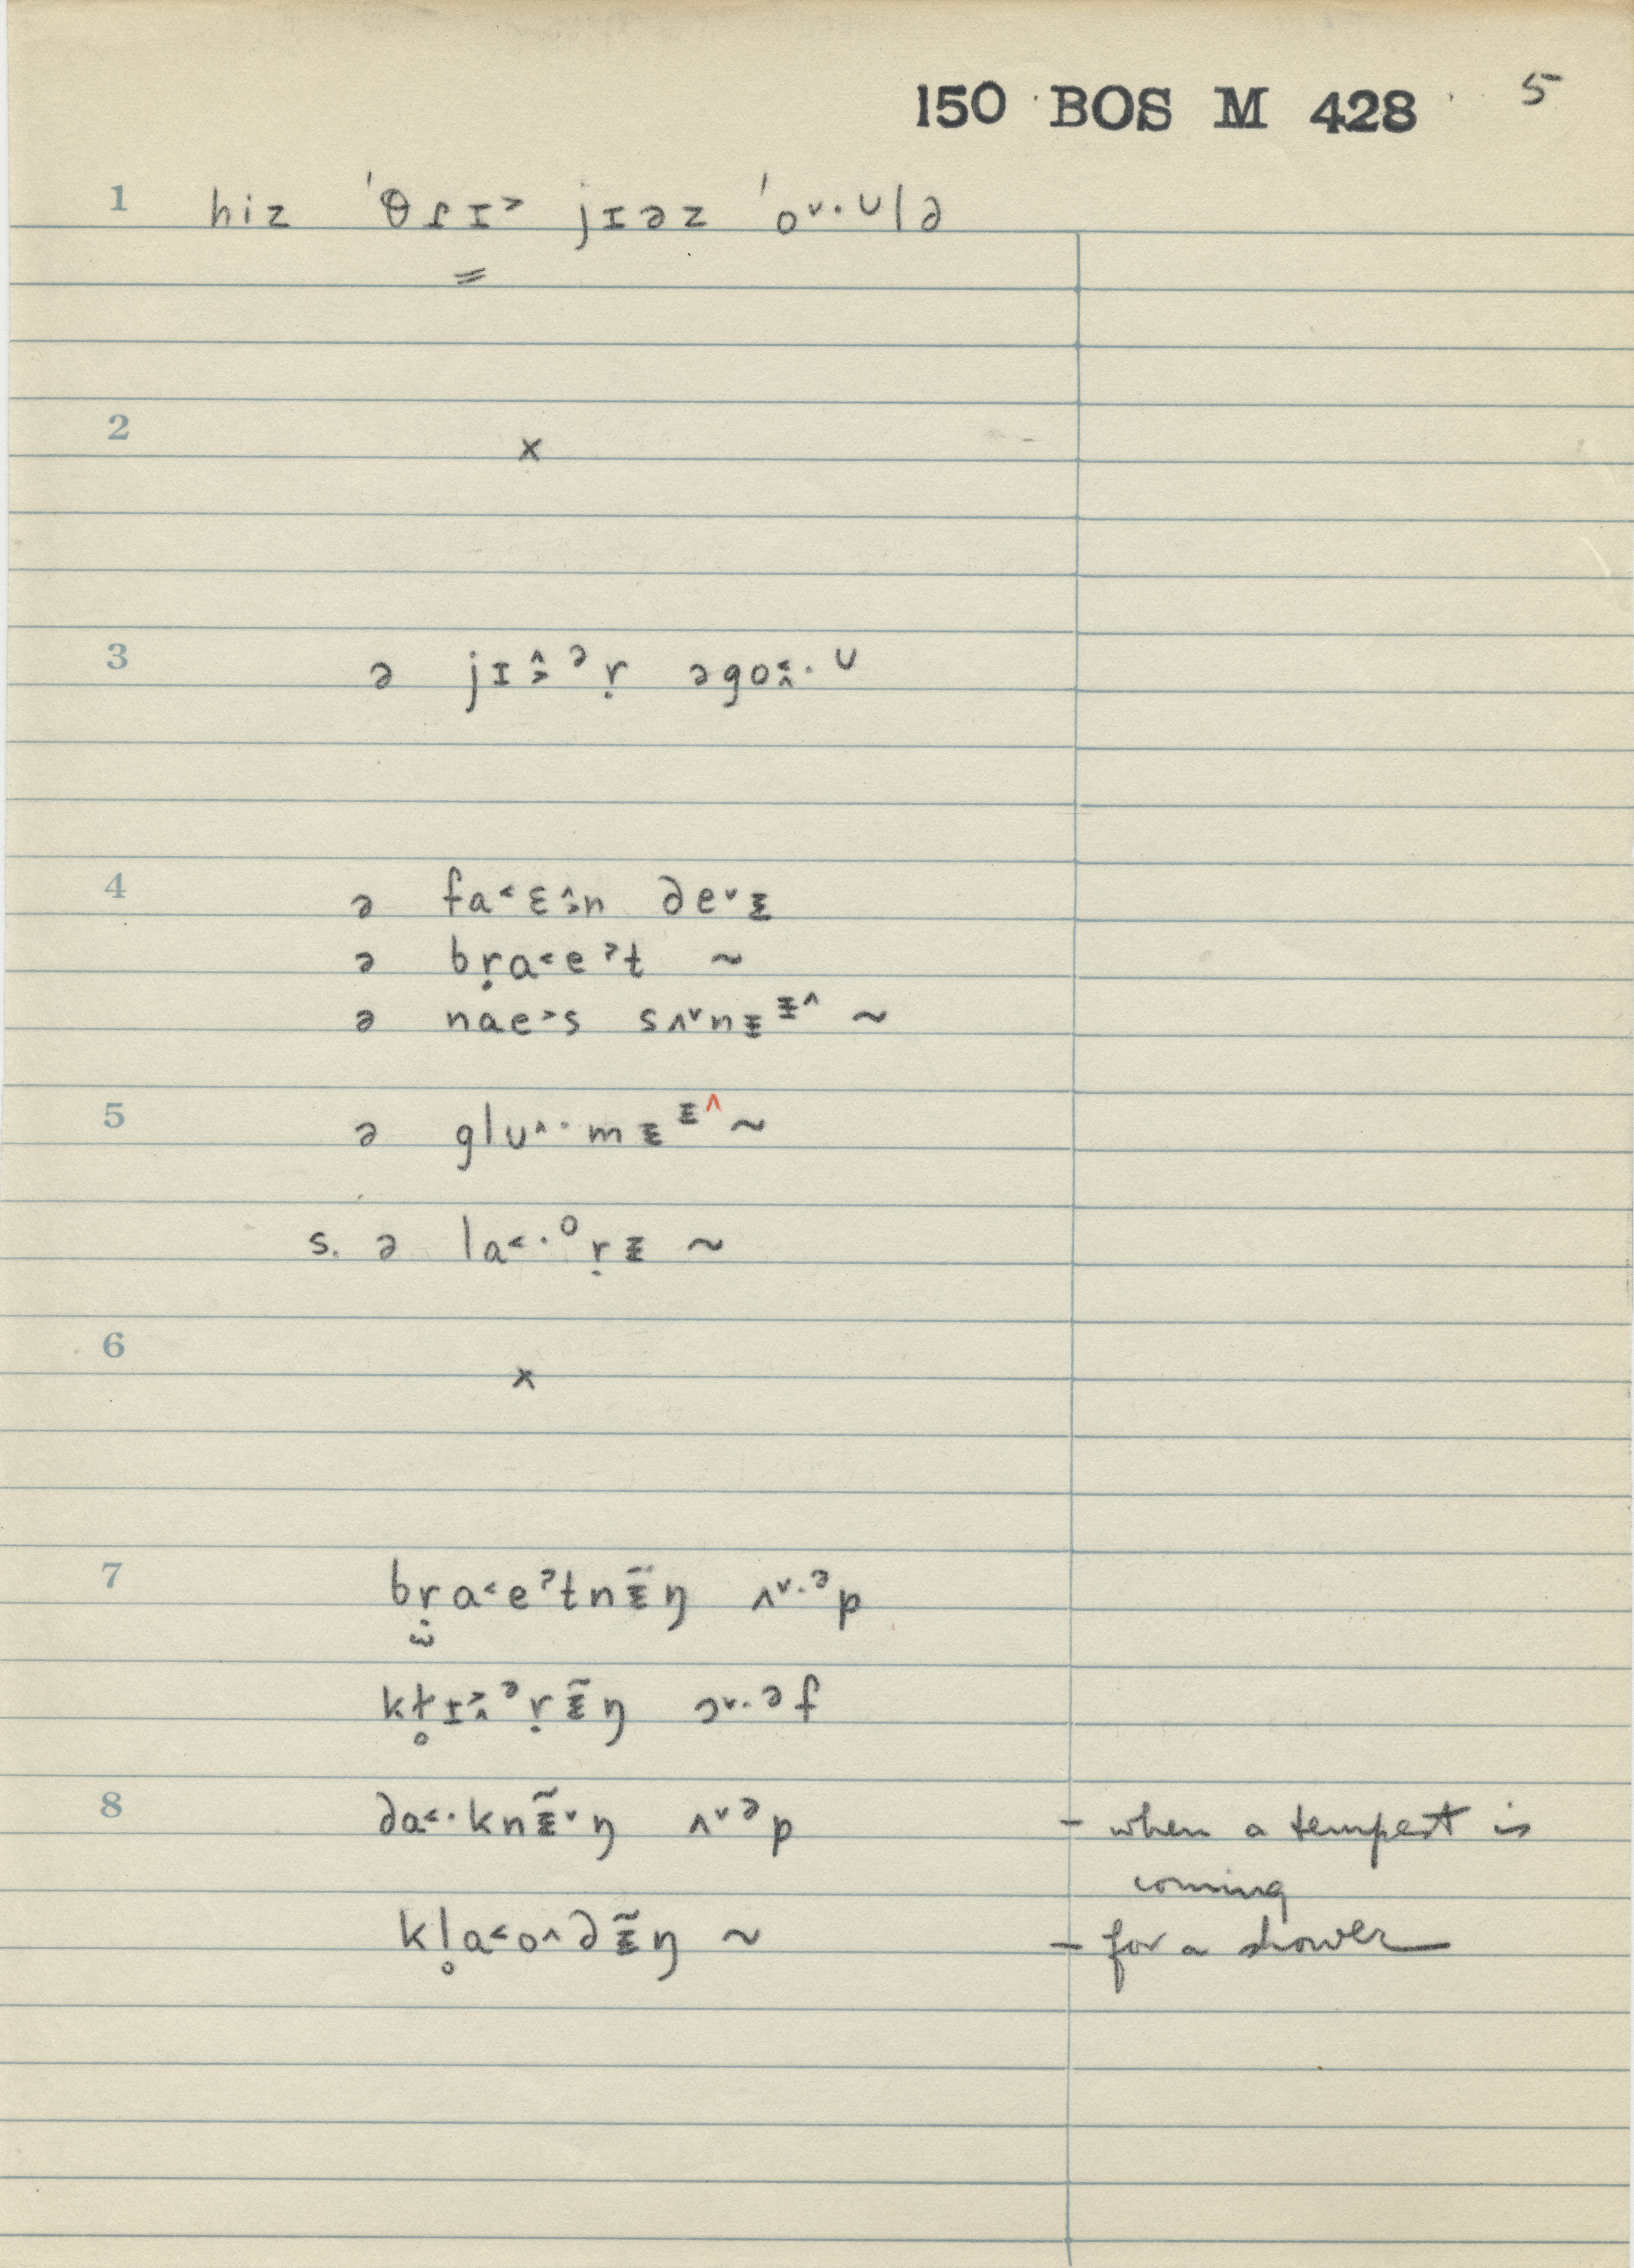 150 BOS M 428 5
1 hiz ˈθɾɪ˃ jɪəz ˈo˅·ᴜlə
2 x
3 ə jɪ˄˃ᵊṛ əgo˂˄·ᶷ
4 ə fa˂ɛ˄˃n de˅ᵻ
ə bṛa˂eˀt ~
ə nae˃s sʌ˅nᵻᵻ˄ ~
5 ə glu˄·mᵻᵻ˄ ~
s. ə la˂·ᵒṛᵻ ~
6 x
7 bṛa˂eˀtnᵻ̃ŋ ʌ˅·ᵊp
kɫ̥ɪ˃˄ᵊṛᵻ̃ŋ ɔ˅·əf
8 da˂·knᵻ̃˅ŋ ʌ˅ᵊp - when a tempest is
coming
kl̥a˂o˄dᵻ̃ŋ ~ - for a shower